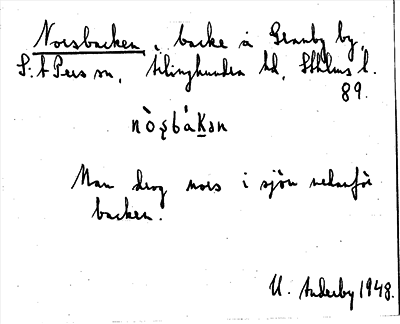 Norsbacken, backe å Granby by,
S:t Pers sn, Seminghundra hd, Sthlms l.
89.
nò̀ʂbàKən
Man drog nors i sjön nedanför
backen.
U. Anderby 1948.